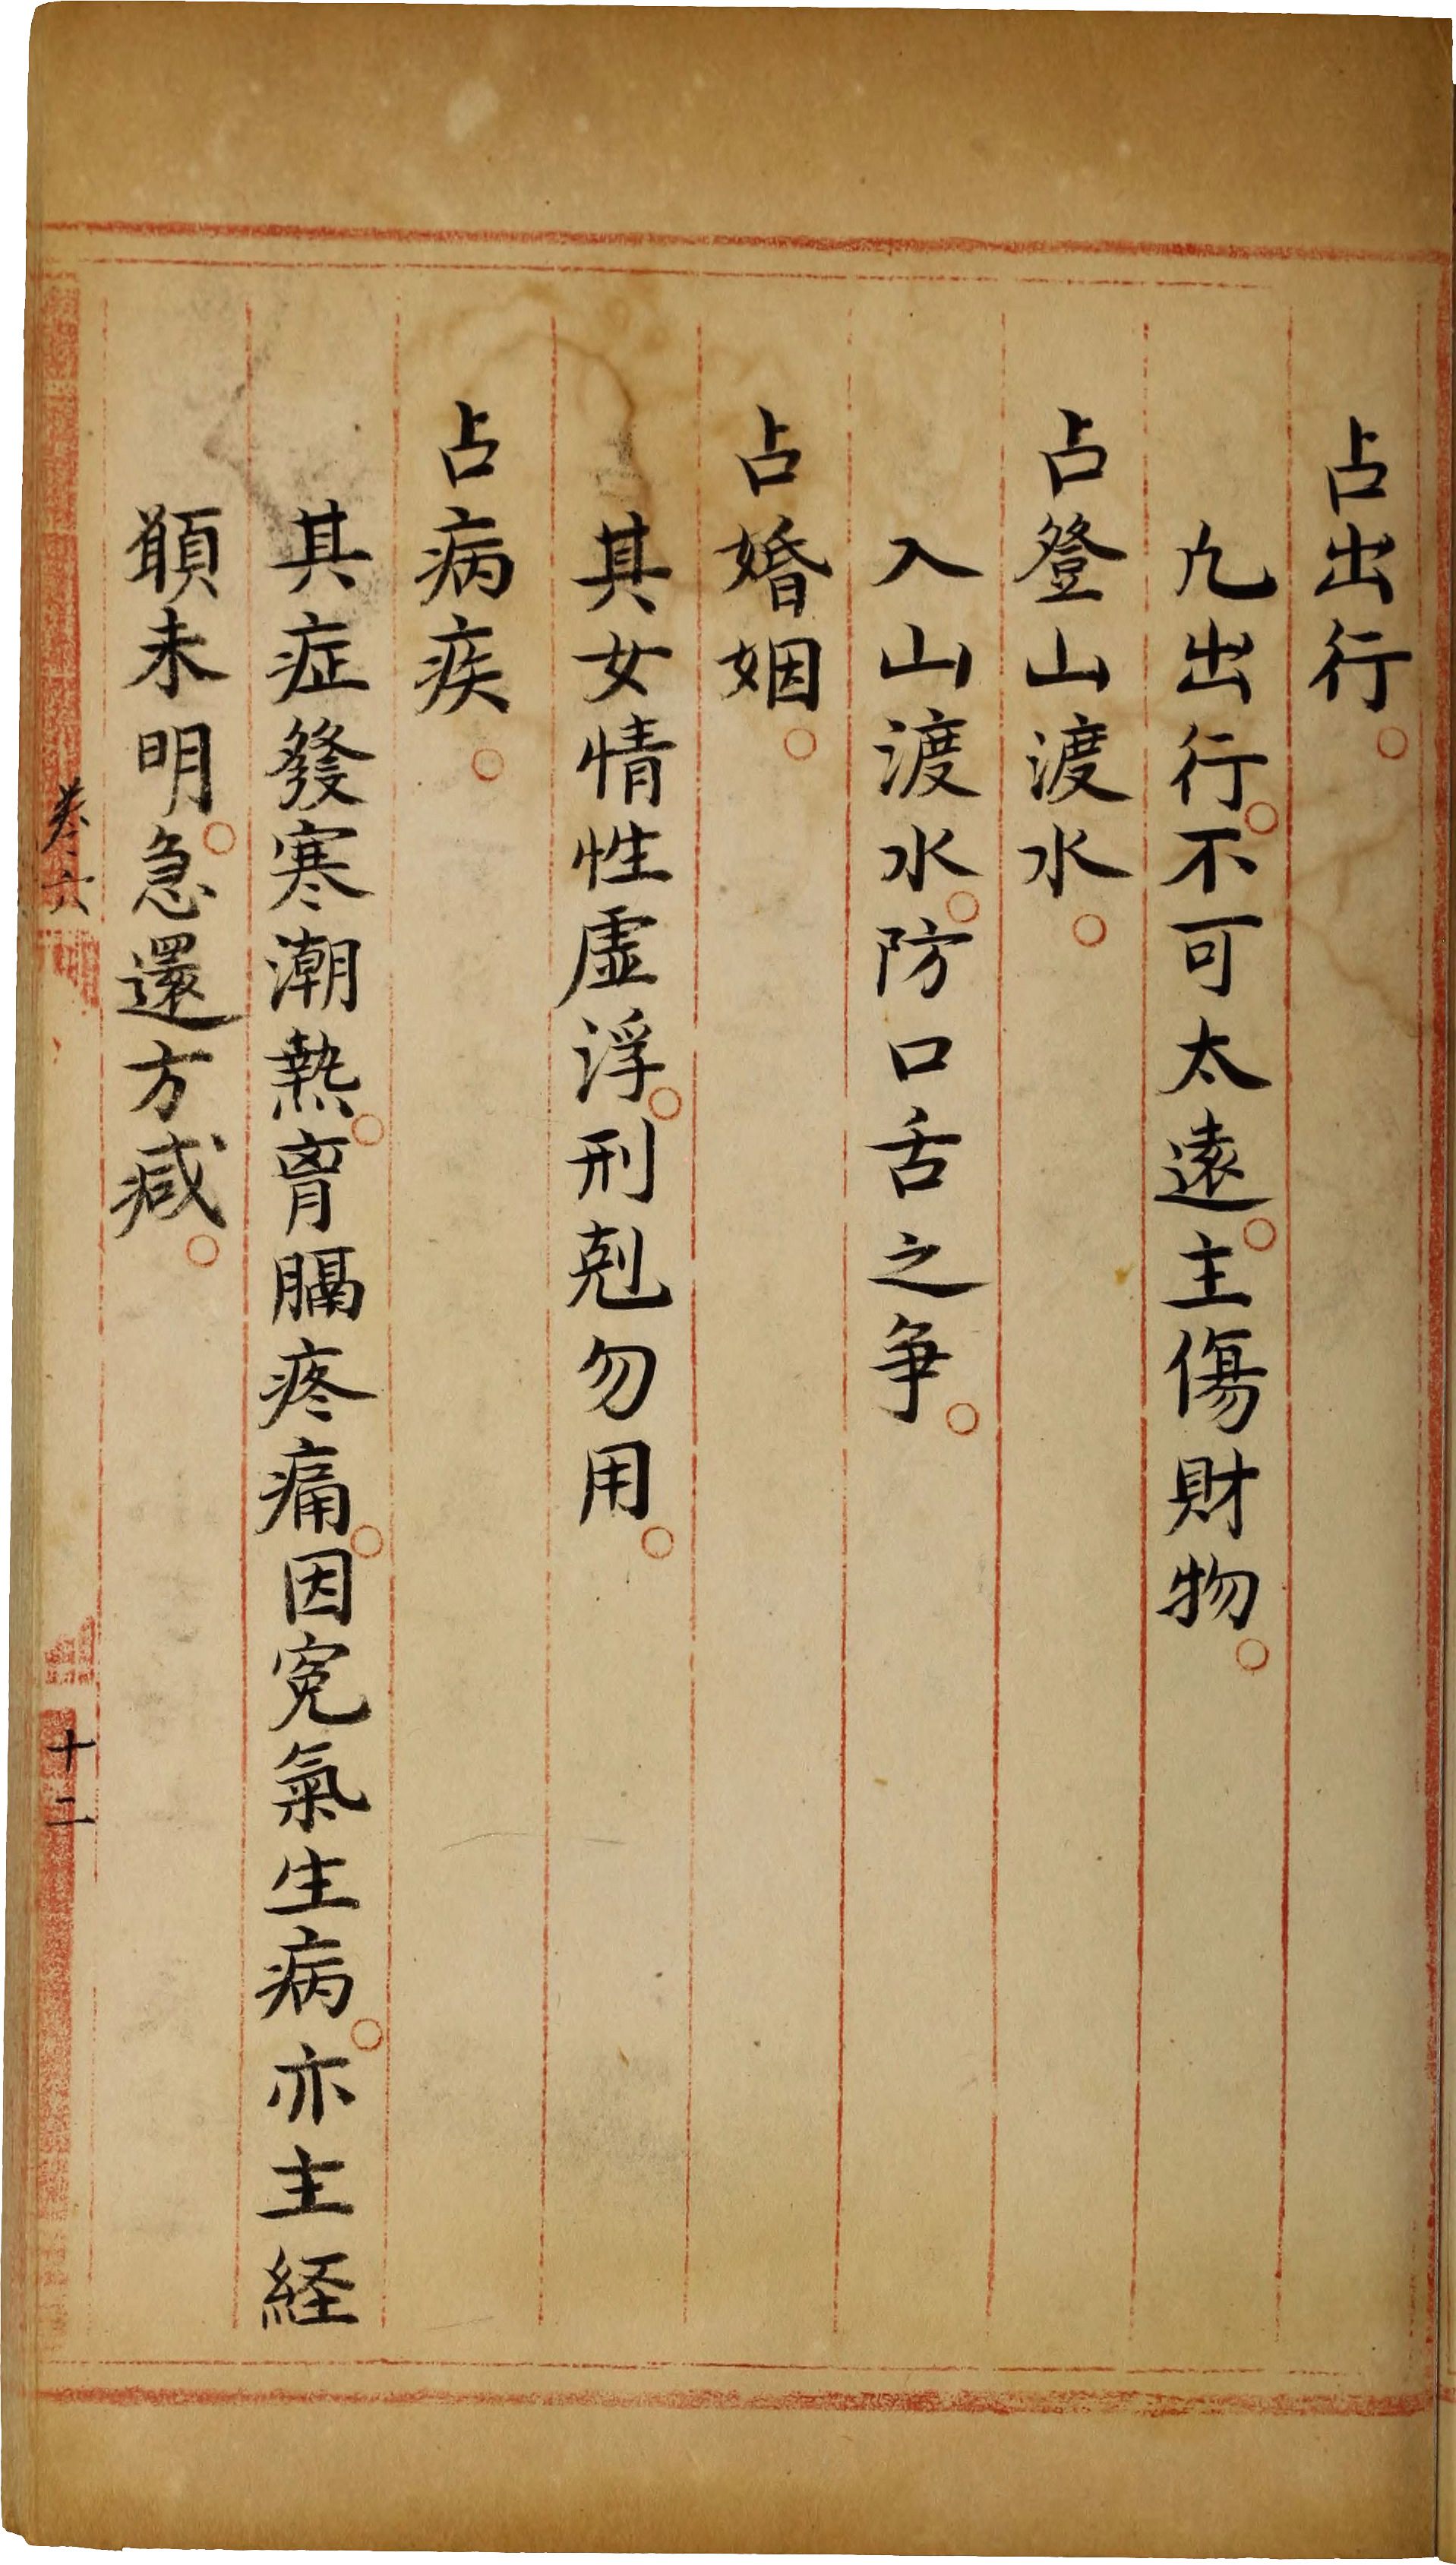 占出行。
凢出行。不可太遠。主傷財物。
占登山渡水。
入山渡水。防口舌之争。
占婚姻。
其女情性虛浮。刑剋勿用。
占病疾。
其症發寒潮熱。胷膈疼痛。因寃氣生病。亦主経
願未明。急還方減。
卷六
十二